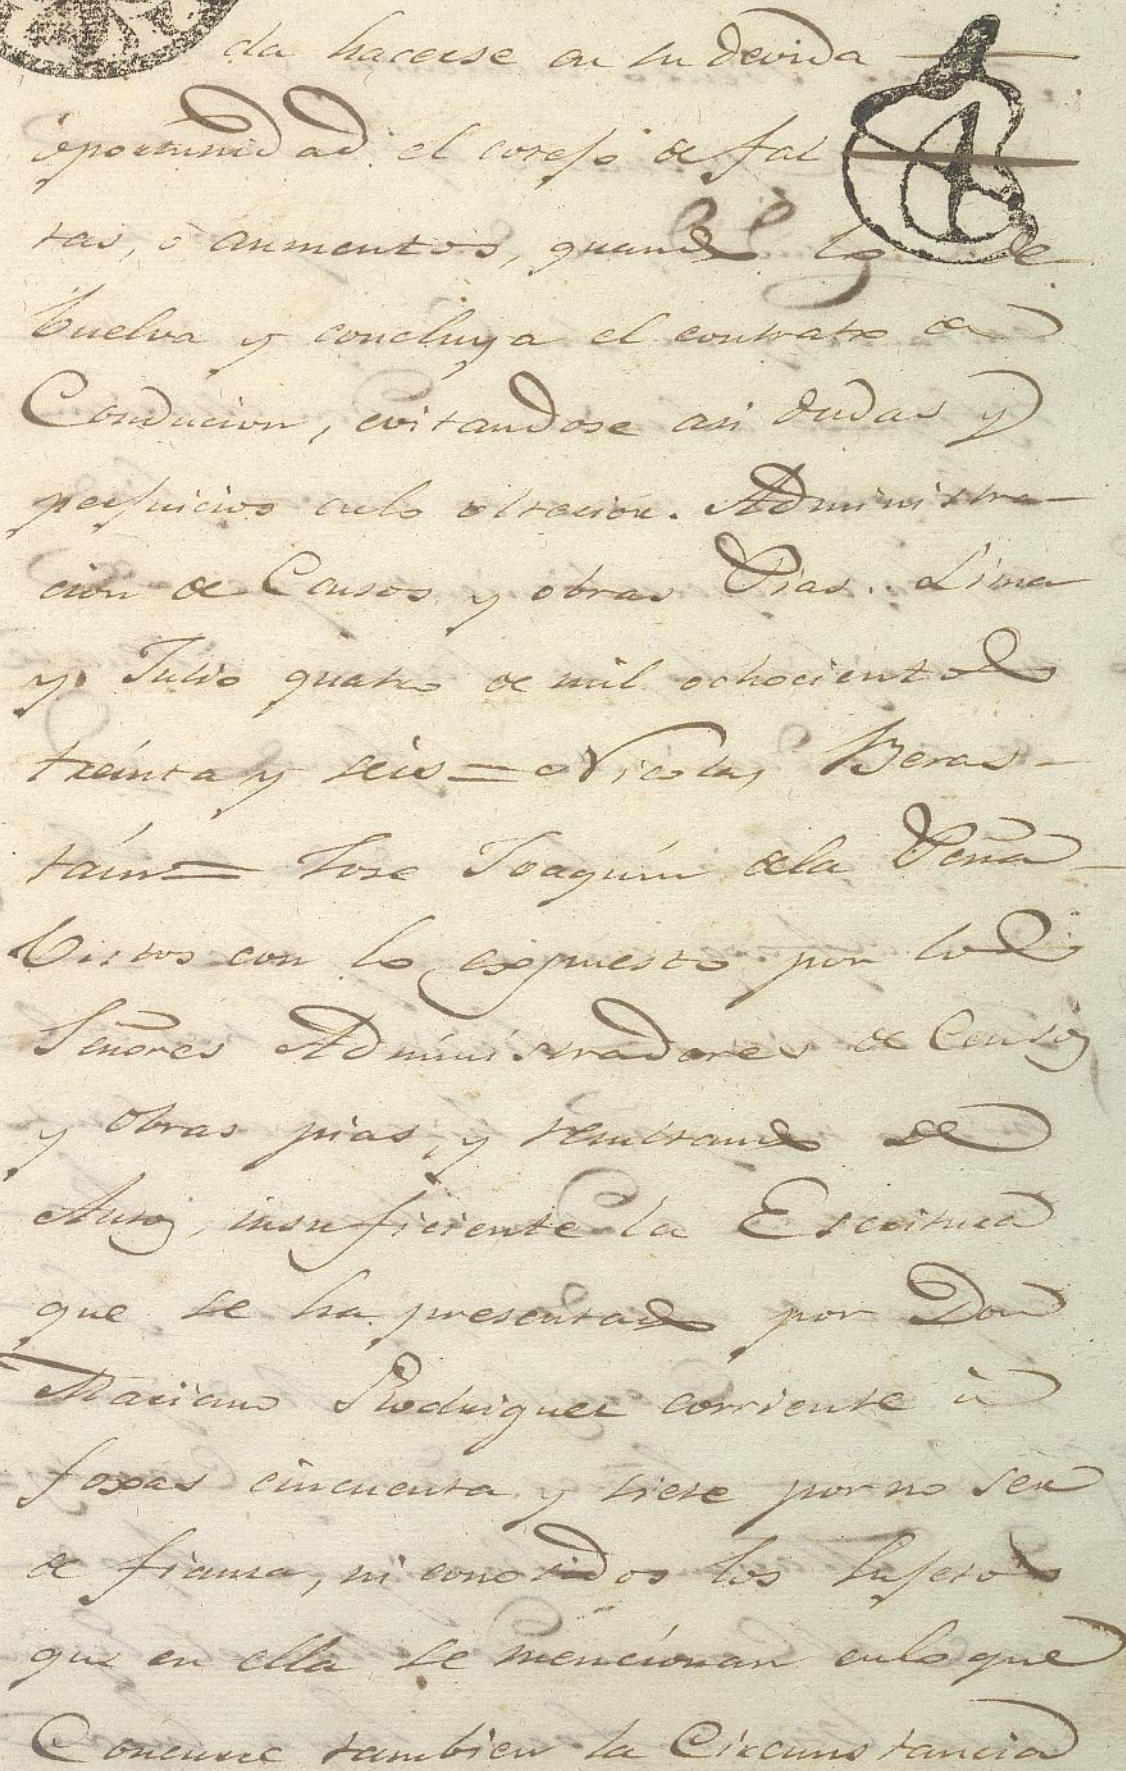 da hacerse en su devida
oportunidad el cotejo de fal
tas, ò aumentos, quando lo de
buelva y concluya el contrato de
Conducion, evitandose asi dudas y
perjuicios en lo Administra-
cion de Censos y obras Pias. Lima
y Julio quatro de mil ochocientos
treinta y seis = Nicolas Beras-
táin = Jose Joaquin dela Peña
Vistos con lo expuesto por los
Señores Administradores de Censos
y obras pias, y resultando de
Autos, insuficiente la Escritura
que se ha presentado por Don
Mariano Rodriguez corriente à
foxas cincuenta y siete por no ser
de fianza, ni conosidos los sujetos
que en ella se mencionan en lo que
Concurre tambien la Circunstancia